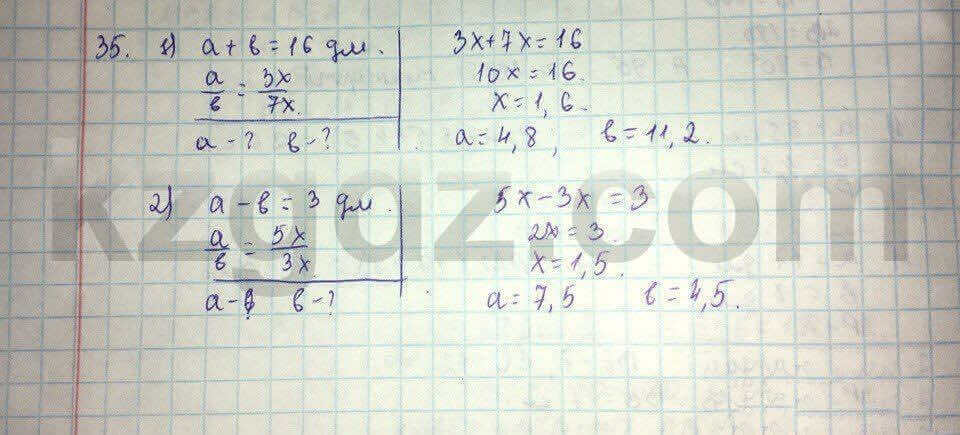 35. 1) a + b = 16 дм.
a/b = 3x/7x.
a - ? b - ?
3x + 7x = 16
10x = 16.
x = 1,6.
a = 4,8; b = 11,2.
2) a - b = 3 дм.
a/b = 5x/3x
a - ? b - ?
5x - 3x = 3
2x = 3.
x = 1,5.
a = 7,5 b = 4,5.
kzgdz.com